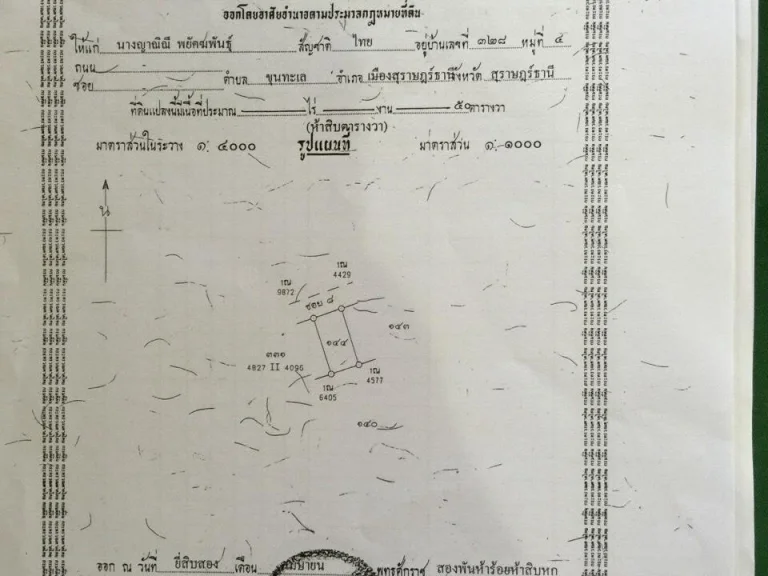 ออกโดยอาศัยอำนาจตามประมวลกฎหมายที่ดิน
ให้แก่ นางญาณิณี พยัคฆพันธุ์ สัญชาติ ไทย อยู่บ้านเลขที่ ๓๒๘ หมู่ที่ ๕
ถนน
ซอย ตำบล ขุนทะเล อำเภอ เมืองสุราษฎร์ธานี จังหวัด สุราษฎร์ธานี
ที่ดินแปลงนี้มีเนื้อที่ประมาณ ไร่ งาน ๕๐ ตารางวา
(ห้าสิบตารางวา)
มาตราส่วนในระวาง ๑:๔๐๐๐ รูปแผนที่ มาตราส่วน ๑:๑๐๐๐
น
ณ 4429
ณ 9872
ซอย ๘
๑๔๓
๑๔๔
๓๓๑
4827 II 4096
4577
6405
๑๔๐
ออก ณ วันที่ ยี่สิบสอง เดือน พุทธศักราช สองพันห้าร้อยห้าสิบหก